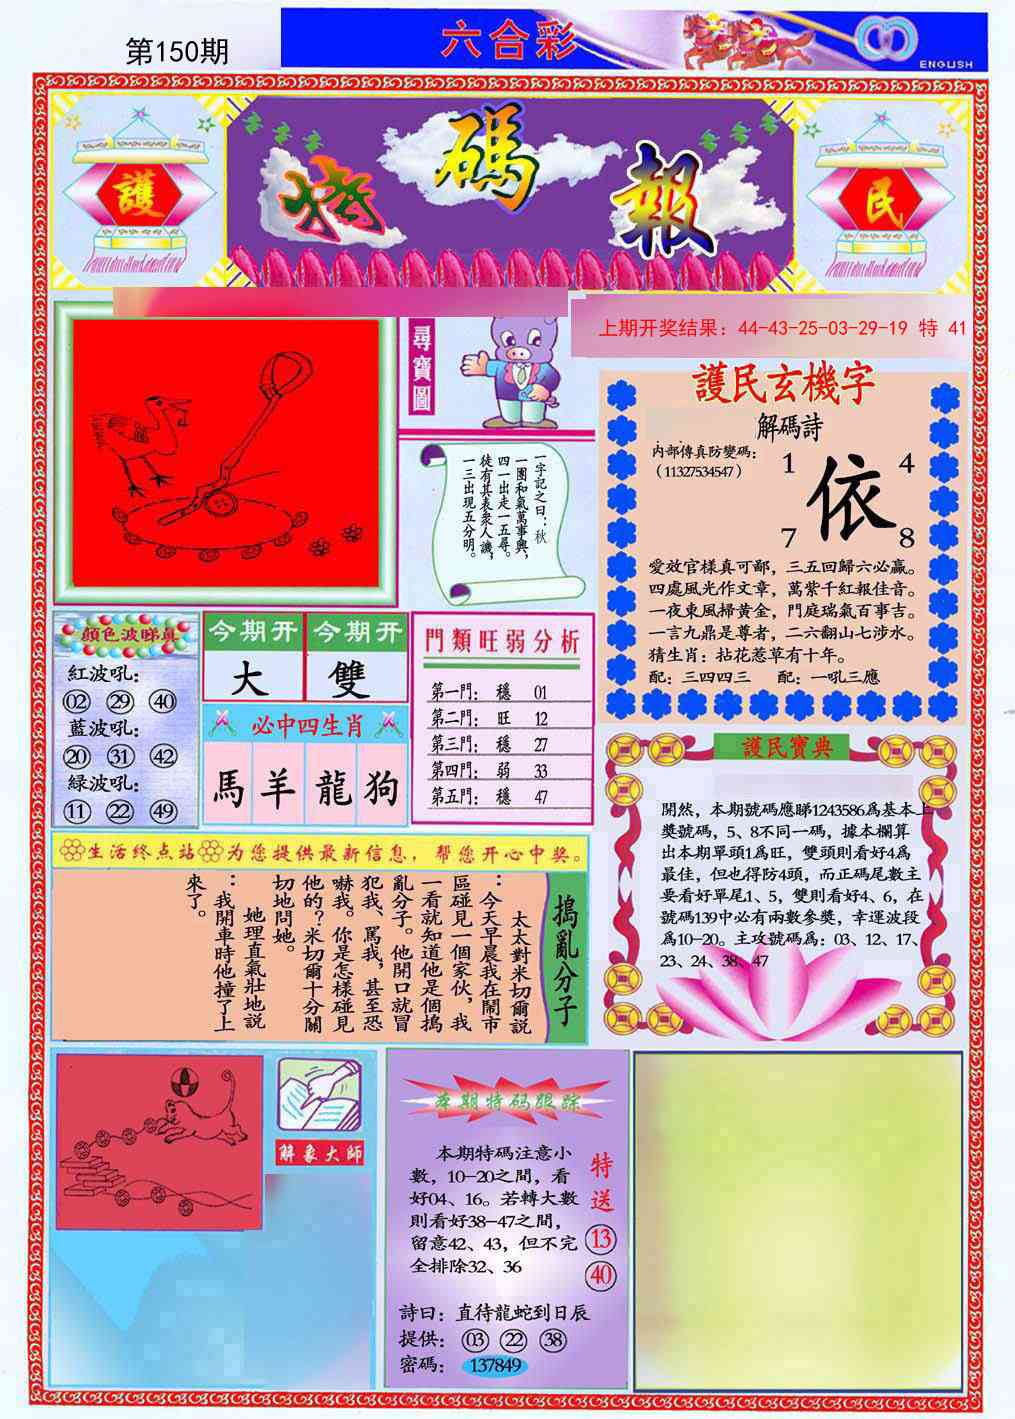 第150期
六合彩
ENGLISH
護
特碼報
民
上期开奖结果：44-43-25-03-29-19 特 41
尋寶圖
一字記之曰：秋
一團和氣萬事興，
四一出走一五尋。
徒有其表衆人譏，
一三出現五分明。
護民玄機字
解碼詩
内部傳真防變碼：
（11327534547）
1 4
依
7 8
愛效官樣真可鄙，三五回歸六必贏。
四處風光作文章，萬紫千紅報佳音。
一夜東風掃黄金，門庭瑞氣百事吉。
一言九鼎是尊者，二六翻山七涉水。
猜生肖：拈花惹草有十年。
配：三四四三 配：一吼三應
顔色波睇真
紅波吼：
02 29 40
藍波吼：
20 31 42
緑波吼：
11 22 49
今期开 今期开
大 雙
必中四生肖
馬 羊 龍 狗
門類旺弱分析
第一門： 穩 01
第二門： 旺 12
第三門： 穩 27
第四門： 弱 33
第五門： 穩 47
護民寶典
開然，本期號碼應睇1243586爲基本上
奬號碼，5、8不同一碼，據本欄算
出本期單頭1爲旺，雙頭則看好4爲
最佳，但也得防4頭，而正碼尾數主
要看好單尾1、5，雙則看好4、6，在
號碼139中必有兩數參奬，幸運波段
爲10-20。主攻號碼爲：03、12、17、
23、24、38、47
生活终点站 为您提供最新信息，帮您开心中奖。
搗亂分子
太太對米切爾説
：今天早晨我在鬧市
區碰見一個家伙，我
一看就知道他是個搗
亂分子。他開口就冒
犯我、駡我，甚至恐
嚇我。你是怎樣碰見
他的？米切爾十分關
切地問她。
她理直氣壯地説
：我開車時他撞了上
來了。
解象大師
本期特码跟踪
本期特码注意小
數，10-20之間，看
好04、16。若轉大數
則看好38-47之間，
留意42、43，但不完
全排除32、36
特送
13
40
詩曰：直待龍蛇到日辰
提供： 03 22 38
密碼： 137849